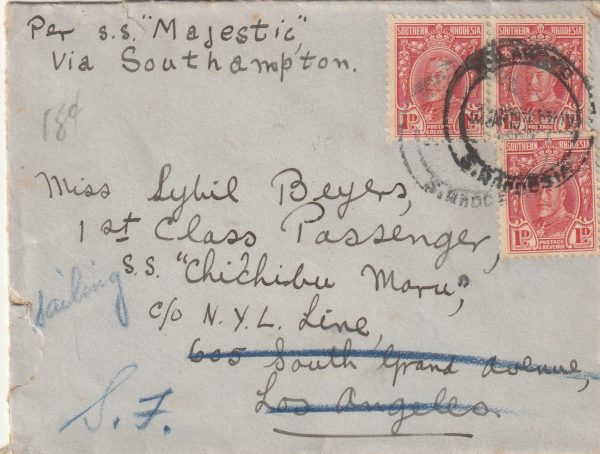 Per s.s. "Majestic"
Via Southampton.
18d
Miss Sybil Beyers,
1st Class Passenger,
S.S. "Chichibu Maru",
c/o N.Y.L. Line,
605 South Grand Avenue,
Los Angeles.
sailing
S.F.
SOUTHERN RHODESIA
1D
POSTAGE & REVENUE
SOUTHERN RHODESIA
POSTAGE & REVENUE
SOUTHERN RHODESIA
1D 1D
POSTAGE & REVENUE
S. RHODESIA
S. RHODESIA